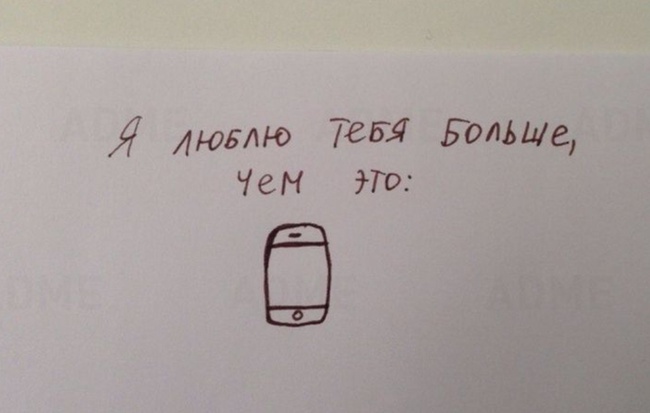 Я люблю тебя больше,
чем это:
ADME ADME ADME
ADME ADME ADME